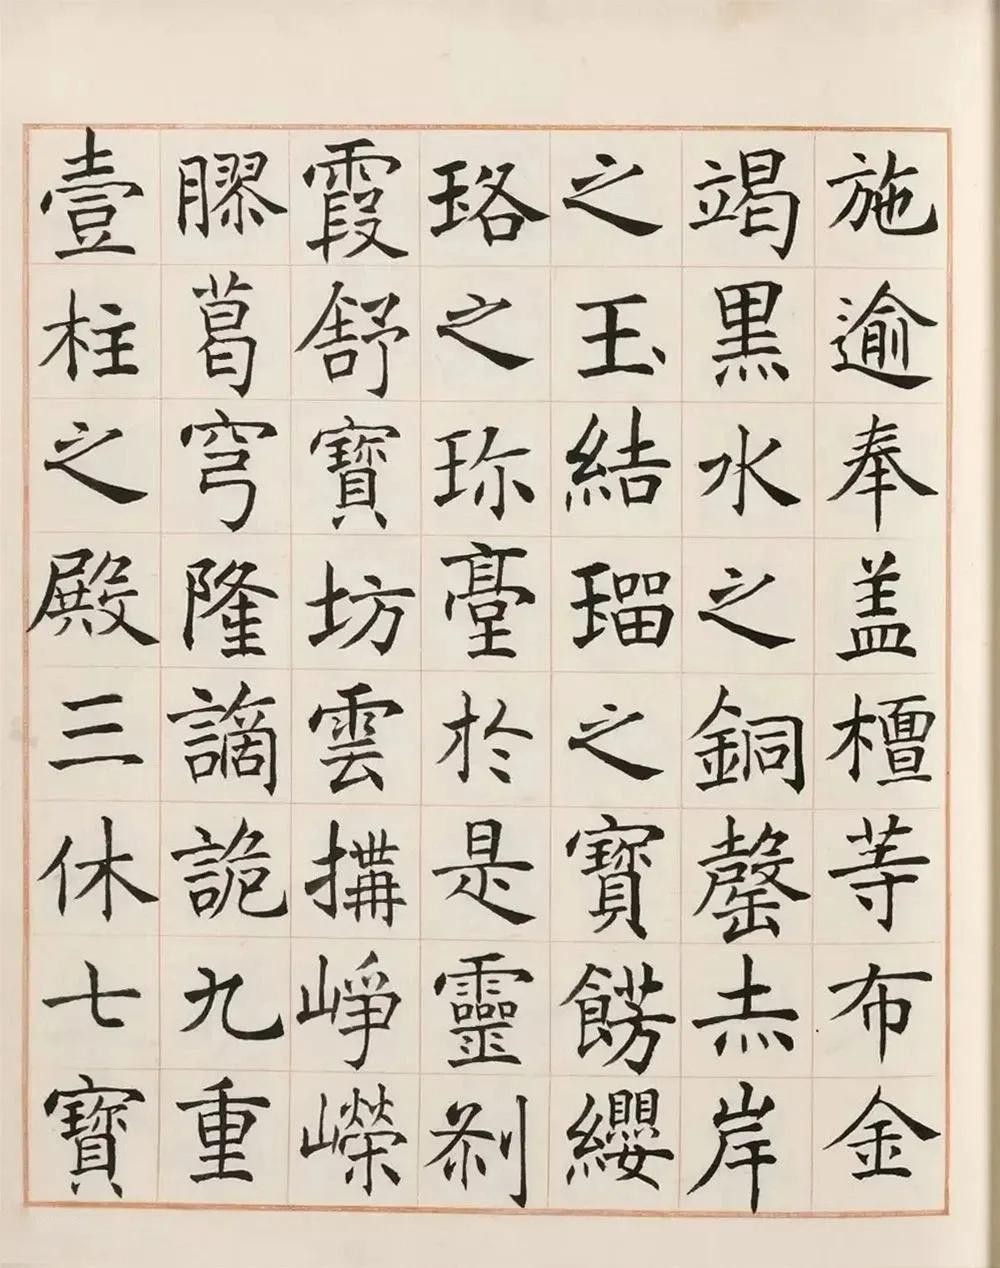 施逾奉盖檀等布金
竭黑水之銅罄赤岸
之玉結瑠之寶餝纓
珞之珎臺於是靈刹
霞舒寶坊雲搆崢嶸
膠葛穹隆謫詭九重
壹柱之殿三休七寶